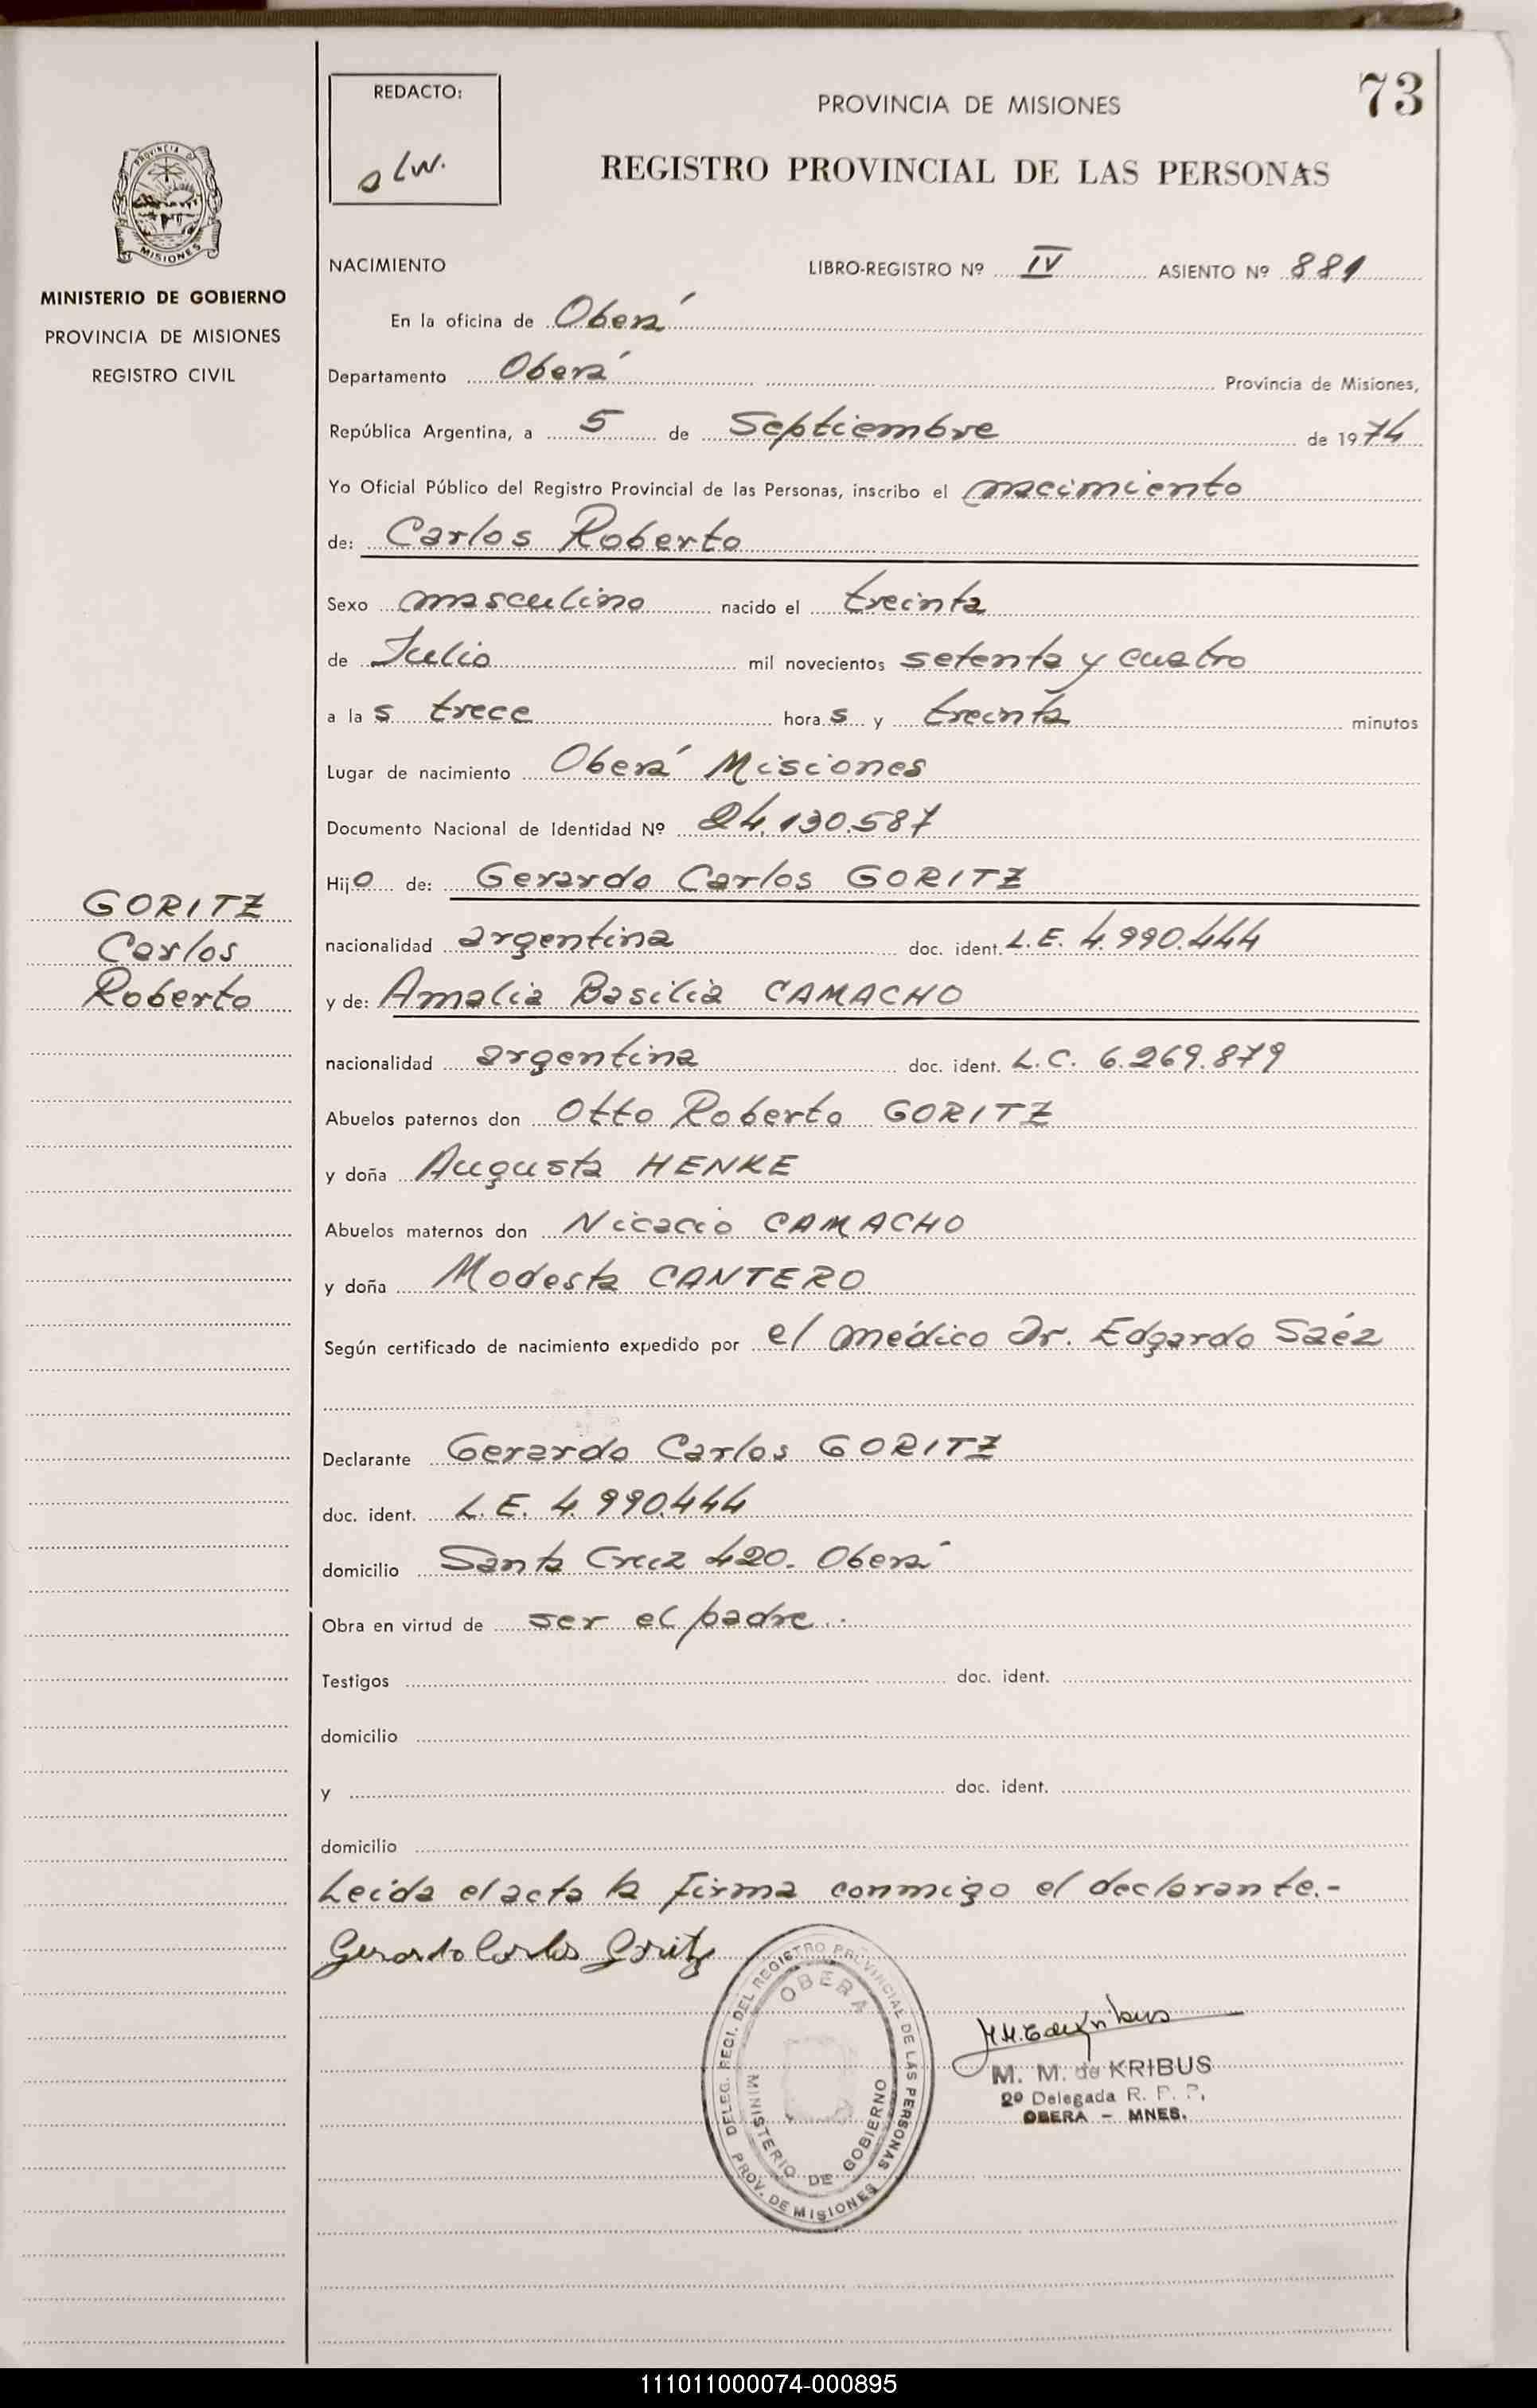 73
REDACTO:
PROVINCIA DE MISIONES
REGISTRO PROVINCIAL DE LAS PERSONAS
PROVINCIA DE
MISIONES
MINISTERIO DE GOBIERNO
PROVINCIA DE MISIONES
REGISTRO CIVIL
NACIMIENTO LIBRO-REGISTRO Nº IV ASIENTO Nº 881
En la oficina de Oberá
Departamento Oberá Provincia de Misiones,
República Argentina, a 5 de Septiembre de 1974
Yo Oficial Público del Registro Provincial de las Personas, inscribo el nacimiento
de: Carlos Roberto
Sexo masculino nacido el treinta
de Julio mil novecientos setenta y cuatro
a la s trece hora s y treinta minutos
Lugar de nacimiento Oberá Misiones
Documento Nacional de Identidad Nº 24.130.587
Hijo de: Gerardo Carlos GORITZ
GORITZ
Carlos
Roberto
nacionalidad argentina doc. ident. L.E. 4.990.444
y de: Amalia Basilia CAMACHO
nacionalidad argentina doc. ident. L.C. 6.269.879
Abuelos paternos don Otto Roberto GORITZ
y doña Augusta HENKE
Abuelos maternos don Nicacio CAMACHO
y doña Modesta CANTERO
Según certificado de nacimiento expedido por el médico Dr. Edgardo Saéz
Declarante Gerardo Carlos GORITZ
doc. ident. L.E. 4.990.444
domicilio Santa Cruz 420. Oberá
Obra en virtud de ser el padre.-
Testigos doc. ident.
domicilio
y doc. ident.
domicilio
Leída el acta la firma conmigo el declarante.-
Gerardo Carlos Goritz
DELEG. REGI. DEL REGISTRO PROVINCIAL DE LAS PERSONAS
OBERA
MINISTERIO DE GOBIERNO
PROV. DE MISIONES
M. M. de KRIBUS
2º Delegada R. P. P.
OBERA - MNES.
111011000074-000895